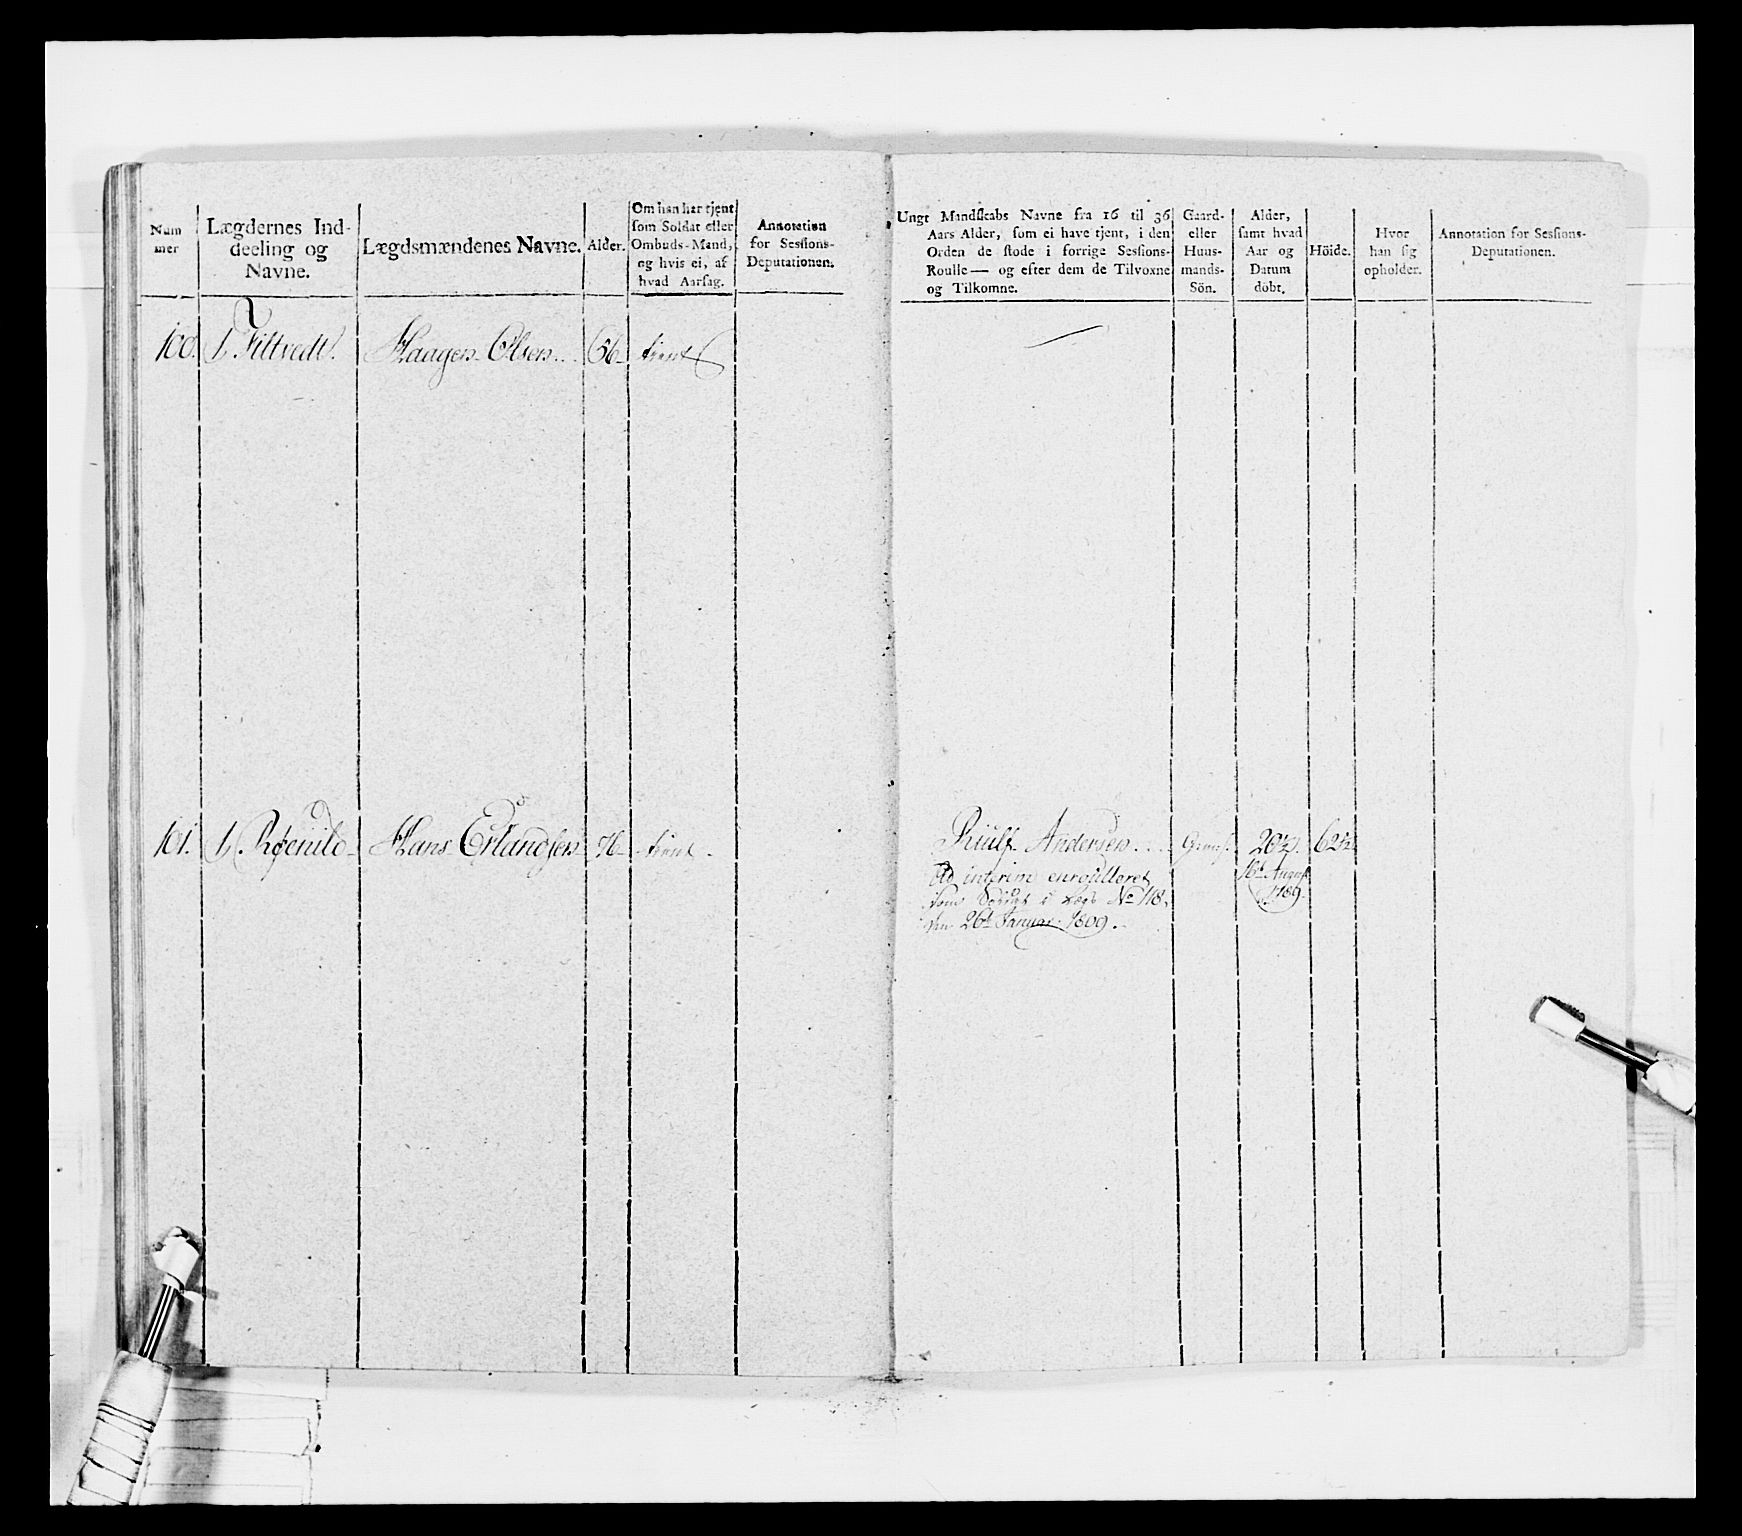 Num
mer
Lægdernes Ind-
deeling og
Navne.
Lægdsmændenes Navne.
Alder.
Om han har tjent
som Soldat eller
Ombuds-Mand,
og hvis ei, af
hvad Aarsag.
Annotation
for Sessions-
Deputationen.
Ungt Mandskabs Navne fra 16 til 36
Aars Alder, som ei have tjent, i den
Orden de stode i forrige Sessions-
Roulle — og efter dem de Tilvoxne
og Tilkomne.
Gaard-
eller
Huus-
mands-
Sön.
Alder,
samt hvad
Aar og
Datum
döbt.
Höide.
Hvor
han sig
opholder.
Annotation for Sessions-
Deputationen.
100. 1 Filtvedt. Haagen Olsen 66 tient
101. 1 Hans Erlandsen 76 tient
Andersen 20½ 62½
Ad interim enroulleret 16 August
som i Lægd No 118 1789.
den 26 Januar 1809.